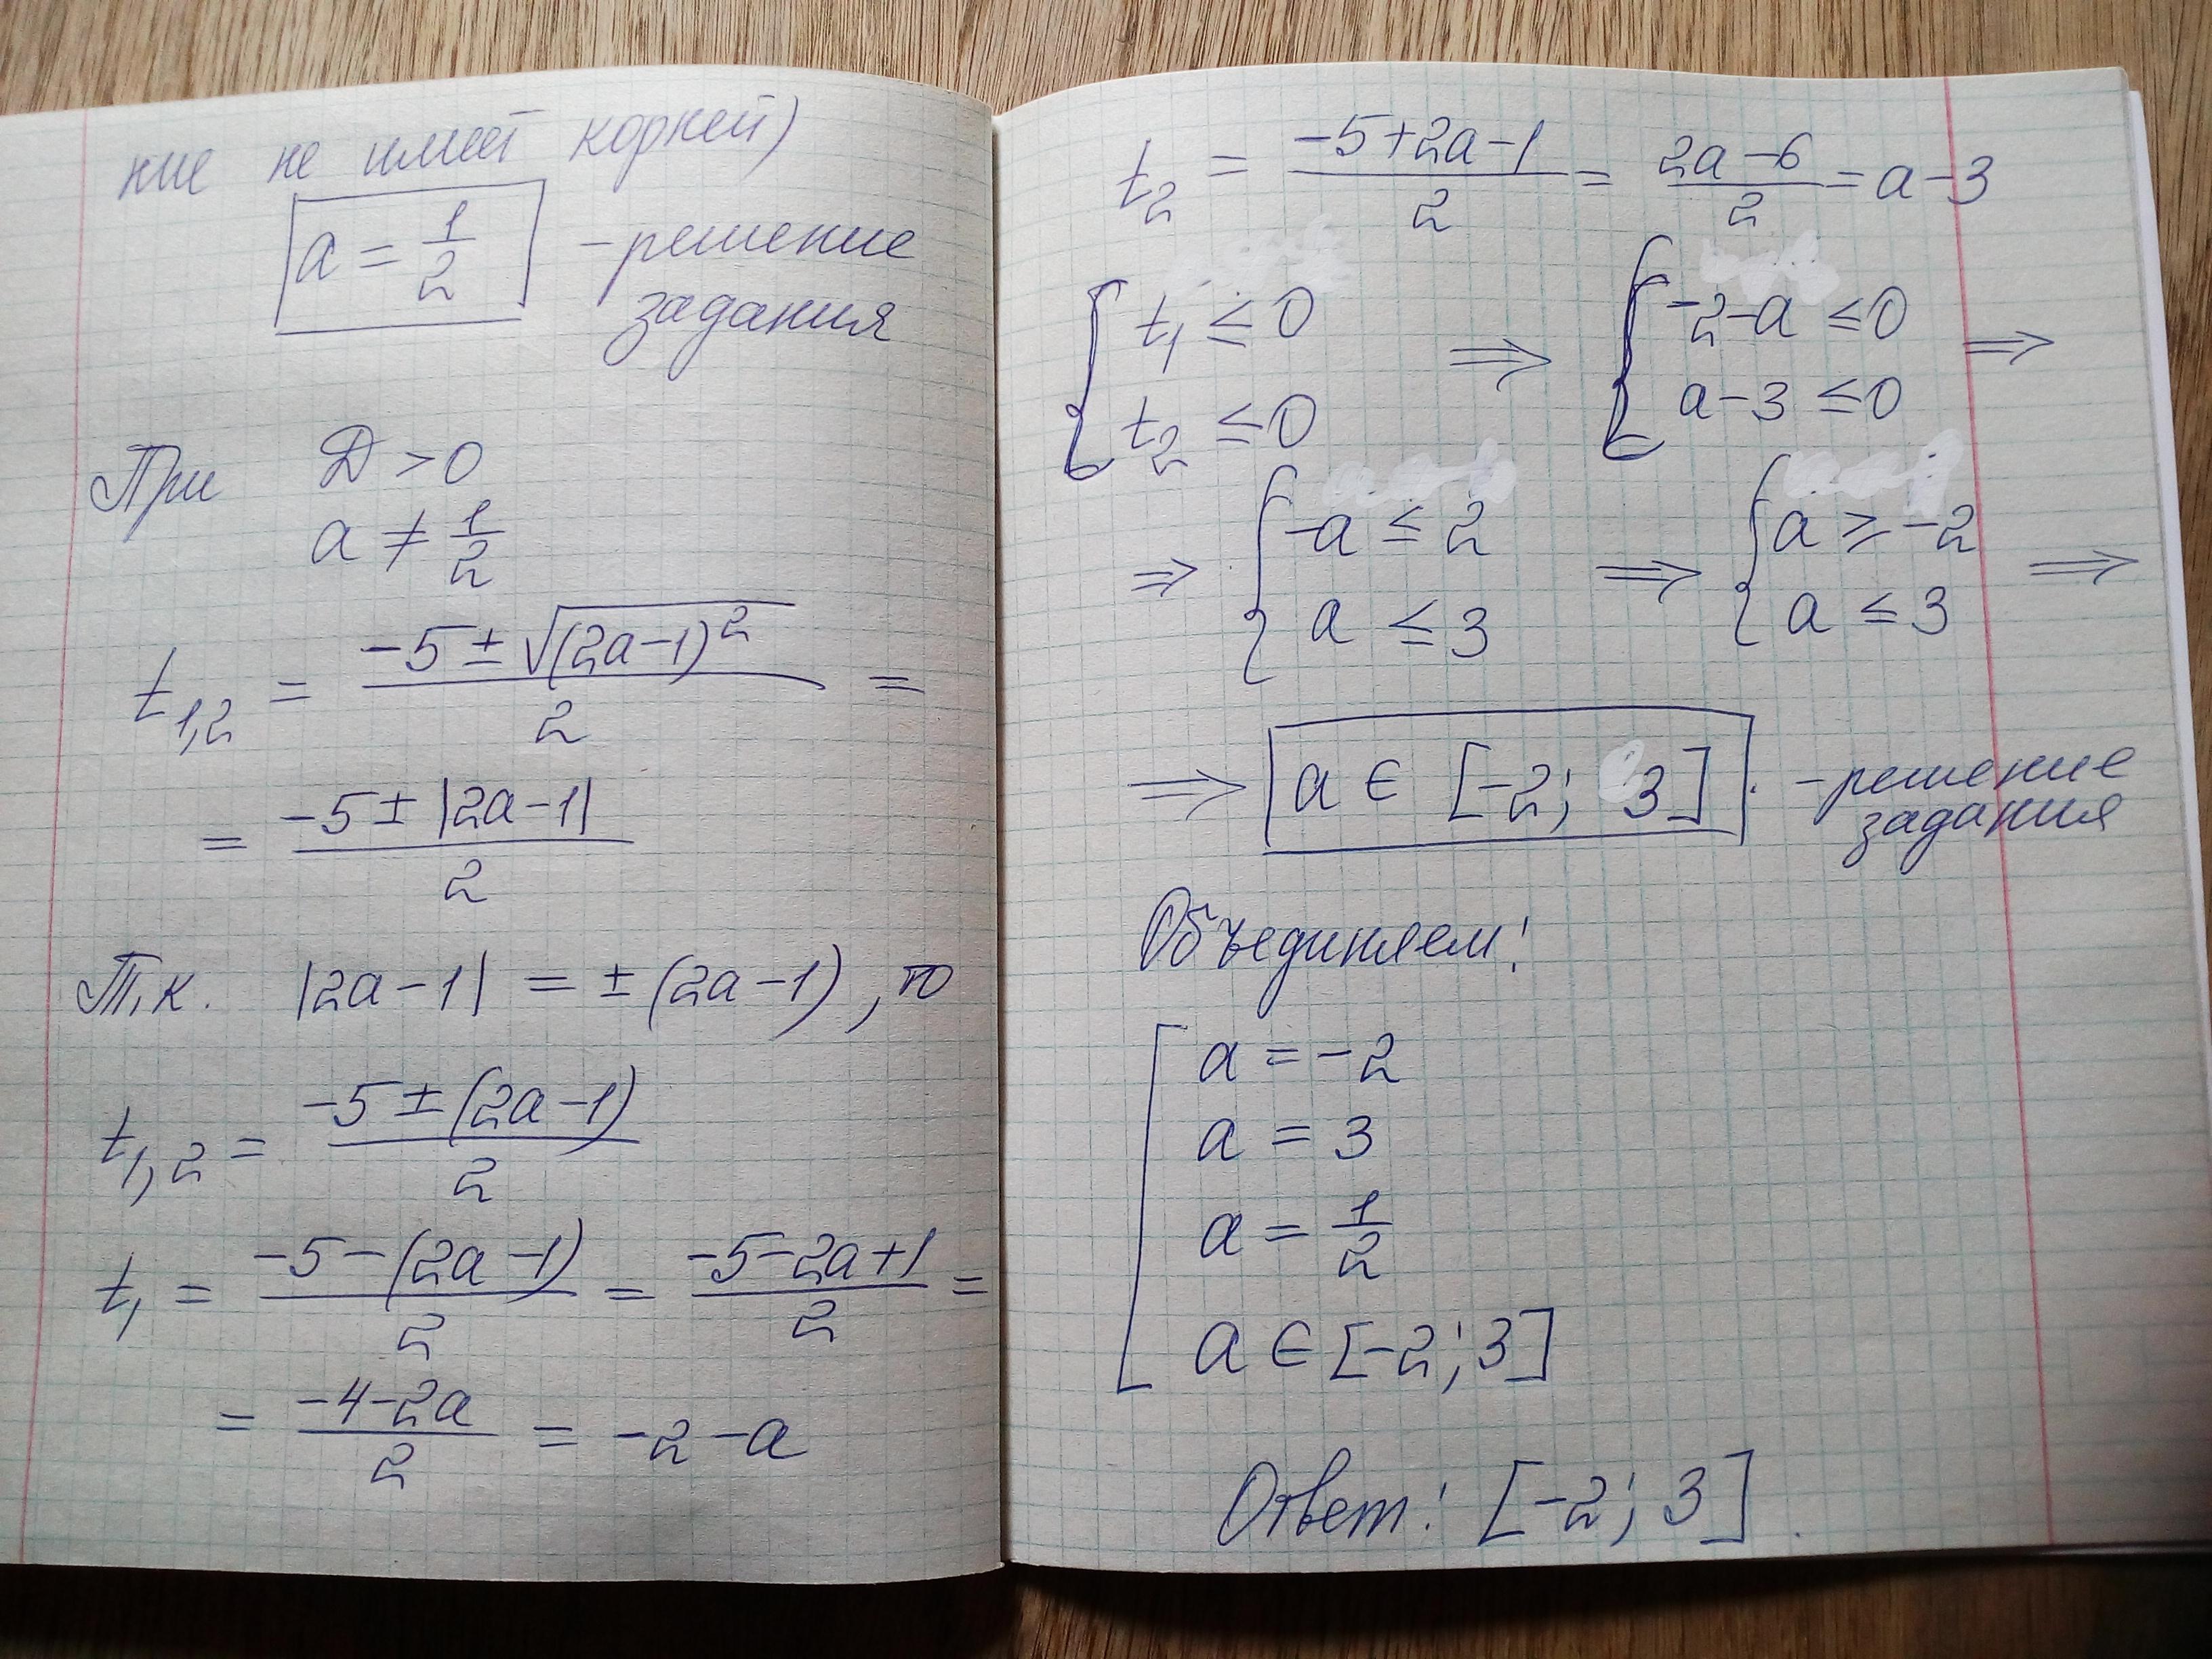 ние не имеет корней)
a = 1/2 – решение
задания
При D > 0
a ≠ 1/2
t₁,₂ = (-5 ± √(2a-1)²)/2 =
= (-5 ± |2a-1|)/2
Т.к. |2a-1| = ±(2a-1), то
t₁,₂ = (-5 ± (2a-1))/2
t₁ = (-5-(2a-1))/2 = (-5-2a+1)/2 =
= (-4-2a)/2 = -2-a
t₂ = (-5+2a-1)/2 = (2a-6)/2 = a-3
{ t₁ ≤ 0 ⇒ { -2-a ≤ 0 ⇒
t₂ ≤ 0 a-3 ≤ 0
⇒ { -a ≤ 2 ⇒ { a ≥ -2 ⇒
a ≤ 3 a ≤ 3
⇒ a ∈ [-2; 3]. – решение
задания
Объединяем:
[ a = -2
a = 3
a = 1/2
a ∈ [-2; 3]
Ответ: [-2; 3].